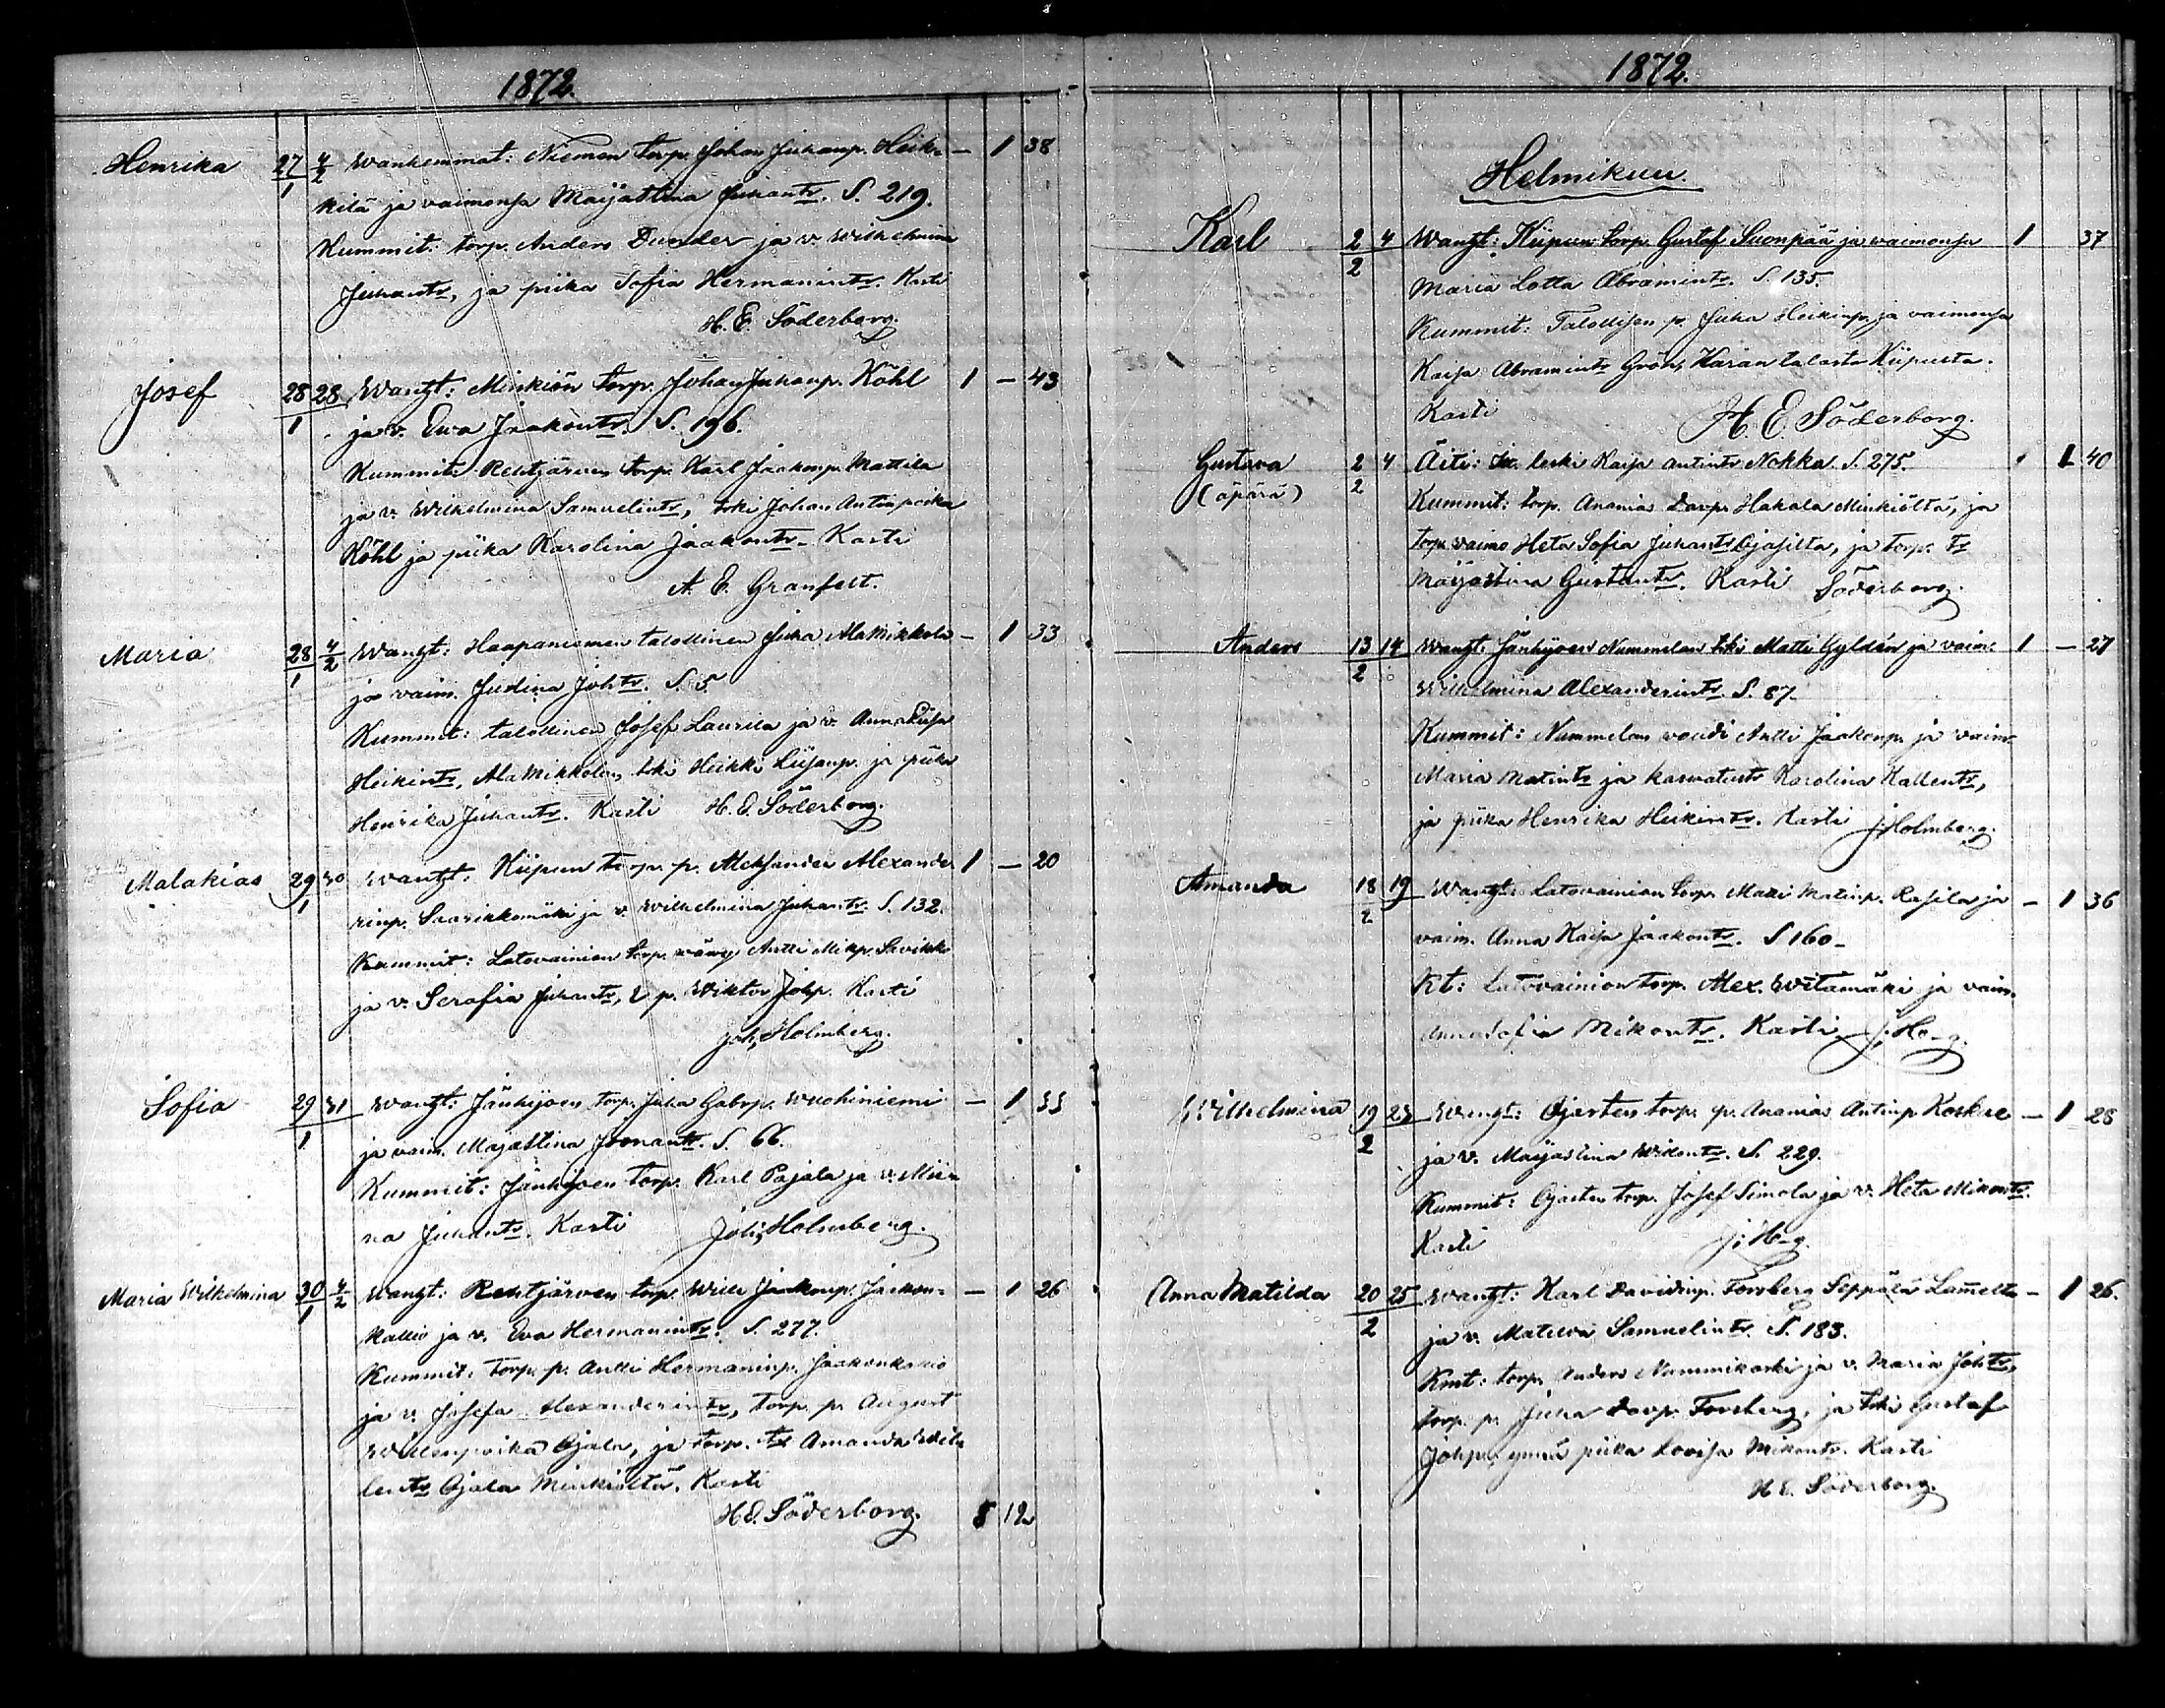 1872.
Henrika 27/1 4/2 Wanhemmat: Niemen torp. Johan Juhanp. Heik- — 1 38
kilä ja vaimonsa Maijastina Juhantr. S. 219.
Kummit: torp. Anders Dunder ja v. Wilhelmina
Juhantr, ja piika Sofia Hermanintr. Kasti
H. E. Söderborg.
Josef 28/1 28 Wanht: Minkiön torp. Johan Juhanp. Köhl 1 — 43
ja v. Ewa Jaakontr. S. 196.
Kummit: Rehtijärven torp. Karl Jaakonp. Mattila
ja v. Wilhelmina Samuelintr, trki Johan Antinpoika
Köhl ja piika Karolina Jaakontr. Kasti
A. E. Granfelt.
Maria 28/1 4/2 Wanht: Haapaniemen talollinen Juha AlaMikkola — 1 33
ja vaim. Judina Johtr. S. 5.
Kummit: talollinen Josef Laurila ja v. Anna
Heikintr, AlaMikkolan trki Heikki ja piika
Henrika Juhantr. Kasti H. E. Söderborg.
Malakias 29/1 30 Wanht: Kiipun torp. p. Aleksander Alexande 1 — 20
rinp. Saarikkomäki ja v. Wilhelmina Juhantr. S. 132.
Kummit: Latovainion torp. vävy Antti Mikp.
ja v. Serafia Juhantr, p. Wiktor Johp. Kasti
Joh. Holmberg.
Sofia 29/1 31 Wanht: Jänhijoen torp. Juha Gabrp. Wuohiniemi — 1 33
ja vaim. Majastina Joonantr. S. 66.
Kummit: Jänhijoen torp. Karl Pajala ja v. Mii-
na Juhantr. Kasti Joh. Holmberg.
Maria Wilhelmina 30/1 4/2 Wanht: Rehtijärven torp. Wille Jaakonp. Jaakon- — 1 26
kallio ja v. Eva Hermanintr. S. 277.
Kummit: torp. p. Antti Hermaninp. Jaakonkallio
ja v. Josefa Alexanderintr, torp. p. August
Willenpoika Ojala, ja torp. tr Amanda Wil-
lentr Ojala Minkiöltä. Kasti
H. E. Söderborg. 5 12
1872.
Helmikuu.
Karl 2/2 4 Wanht: Kiipun torp. Gustaf Suonpää ja vaimonsa 1 37
Maria Lotta Abramintr. S. 135.
Kummit: Talollisen p. Juha Heikinp. ja vaimonsa
Kaisa Abramintr Gröh, Häran talosta Kiipusta.
Kasti H. E. Söderborg.
Gustava 2/2 4 Äiti: It. leski Kaisa Antintr Nokka. S. 275. 1 40
(äpärä) Kummit: torp. Ananias Davp. Hakala Minkiöltä, ja
torp. vaimo Heta Sofia Juhantr Ojasilta, ja torp. tr
Maijastina Gustantr. Kasti Söderborg.
Anders 13/2 14 Wanht: Jänhijoen Nummelan trki Matti Gyldén ja vaim. 1 — 27
Wilhelmina Alexanderintr. S. 87.
Kummit: Nummelan vouti Antti Jaakonp. ja vaim.
Maria Matintr ja kasvatustr Karolina Kallentr,
ja piika Henrika Heikintr. Kasti J. Holmberg.
Amanda 18/2 19 Wanht: Latovainion torp. Matti Matinp. Rasila ja — 1 36
vaim. Anna Kaisa Jaakontr. S 160.
Kt: Latovainion torp. Alex. Witamäki ja vaim.
Annasofia Mikontr. Kasti J. Ho-g.
Wilhelmina 19/2 23 Wanht: Ojasten torp. p. Ananias Antinp Koskue — 1 28
ja v. Maijastina S. 229.
Kummit: Ojasten torp. Josef Simola ja v. Heta Mikontr.
Kasti J. H-g.
Anna Matilda 20/2 25 Wanht: Karl Davidinp. Forsberg Seppälä — 1 26.
ja v. Matilda Samuelintr. S. 183.
Kmt: torp. Anders Nummikoski ja v. Maria Johtr,
torp. p. Juha Davp. Forsberg, ja trki Gustaf
Johp. ynnä piika Lovisa Mikontr. Kasti
H E. Söderborg.